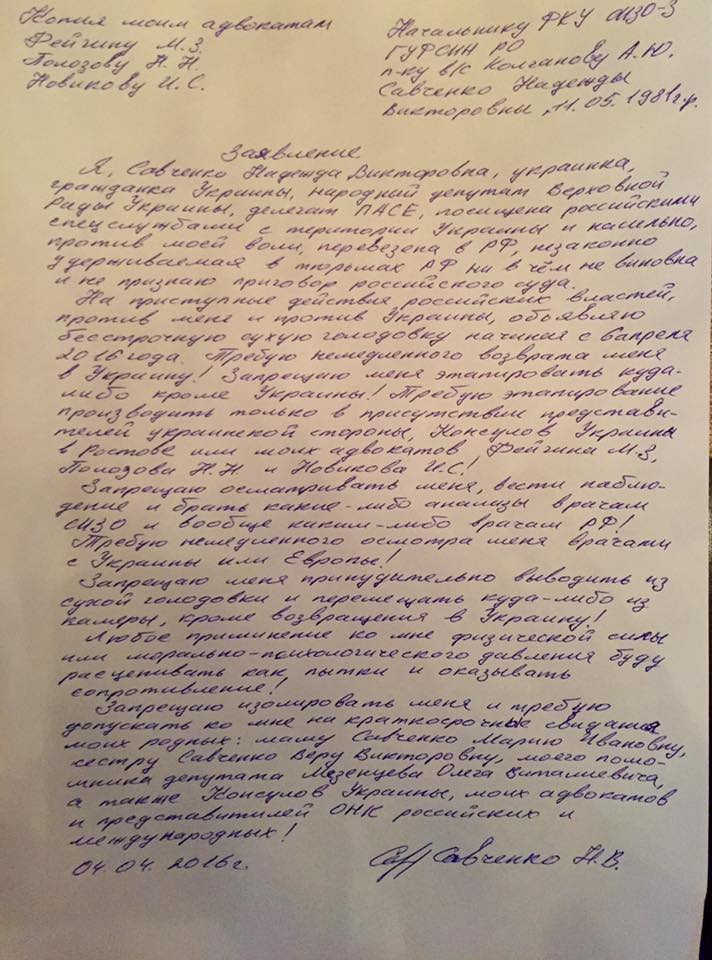 Копия моим адвокатам
Фейгину М.З.
Полозову Н.Н.
Новикову И.С.
Начальнику ФКУ СИЗО-3
ГУФСИН РО
п-ку в/с Колганову А.Ю.
Савченко Надежды
Викторовны, 11.05.1981г.р.
Заявление
Я, Савченко Надежда Викторовна, украинка,
гражданка Украины, Народный депутат Верховной
Рады Украины, делегат ПАСЕ, посищена российскими
спецслужбами с територии Украины и насильно,
против моей воли, перевезена в РФ, незаконно
удерживаемая в тюрьмах РФ ни в чём не виновна
и не признаю приговор российского суда.
На приступные действия российских властей,
против меня и против Украины, объявляю
бессрочную сухую голодовку начиная с 6 апреля
2016 года. Требую немедленного возврата меня
в Украину! Запрещаю меня этапировать куда-
либо кроме Украины! Требую этапирование
производить только в присутствии представи-
телей украинской стороны, Консулов Украины
в Ростове или моих адвокатов Фейгина М.З,
Полозова Н.Н. и Новикова И.С!
Запрещаю осматривать меня, вести наблю-
дение и брать какие-либо анализы врачам
СИЗО и вообще каким-либо врачам РФ!
Требую немедленного осмотра меня врачами
с Украины или Европы!
Запрещаю меня принудительно выводить из
сухой голодовки и перемещать куда-либо из
камеры, кроме возвращения в Украину!
Любое приминение ко мне физической силы
или морально-психологического давления буду
расценивать как пытки и оказывать
сопротивление!
Запрещаю изолировать меня и требую
допускать ко мне на краткосрочные свидания
моих родных: маму Савченко Марию Ивановну,
сестру Савченко Веру Викторовну, моего помо-
щника депутата Мезенцева Олега Виталиевича,
а также Консулов Украины, моих адвокатов
и представитилей ОНК российских и
международных!
04.04.2016г. Савченко Н.В.